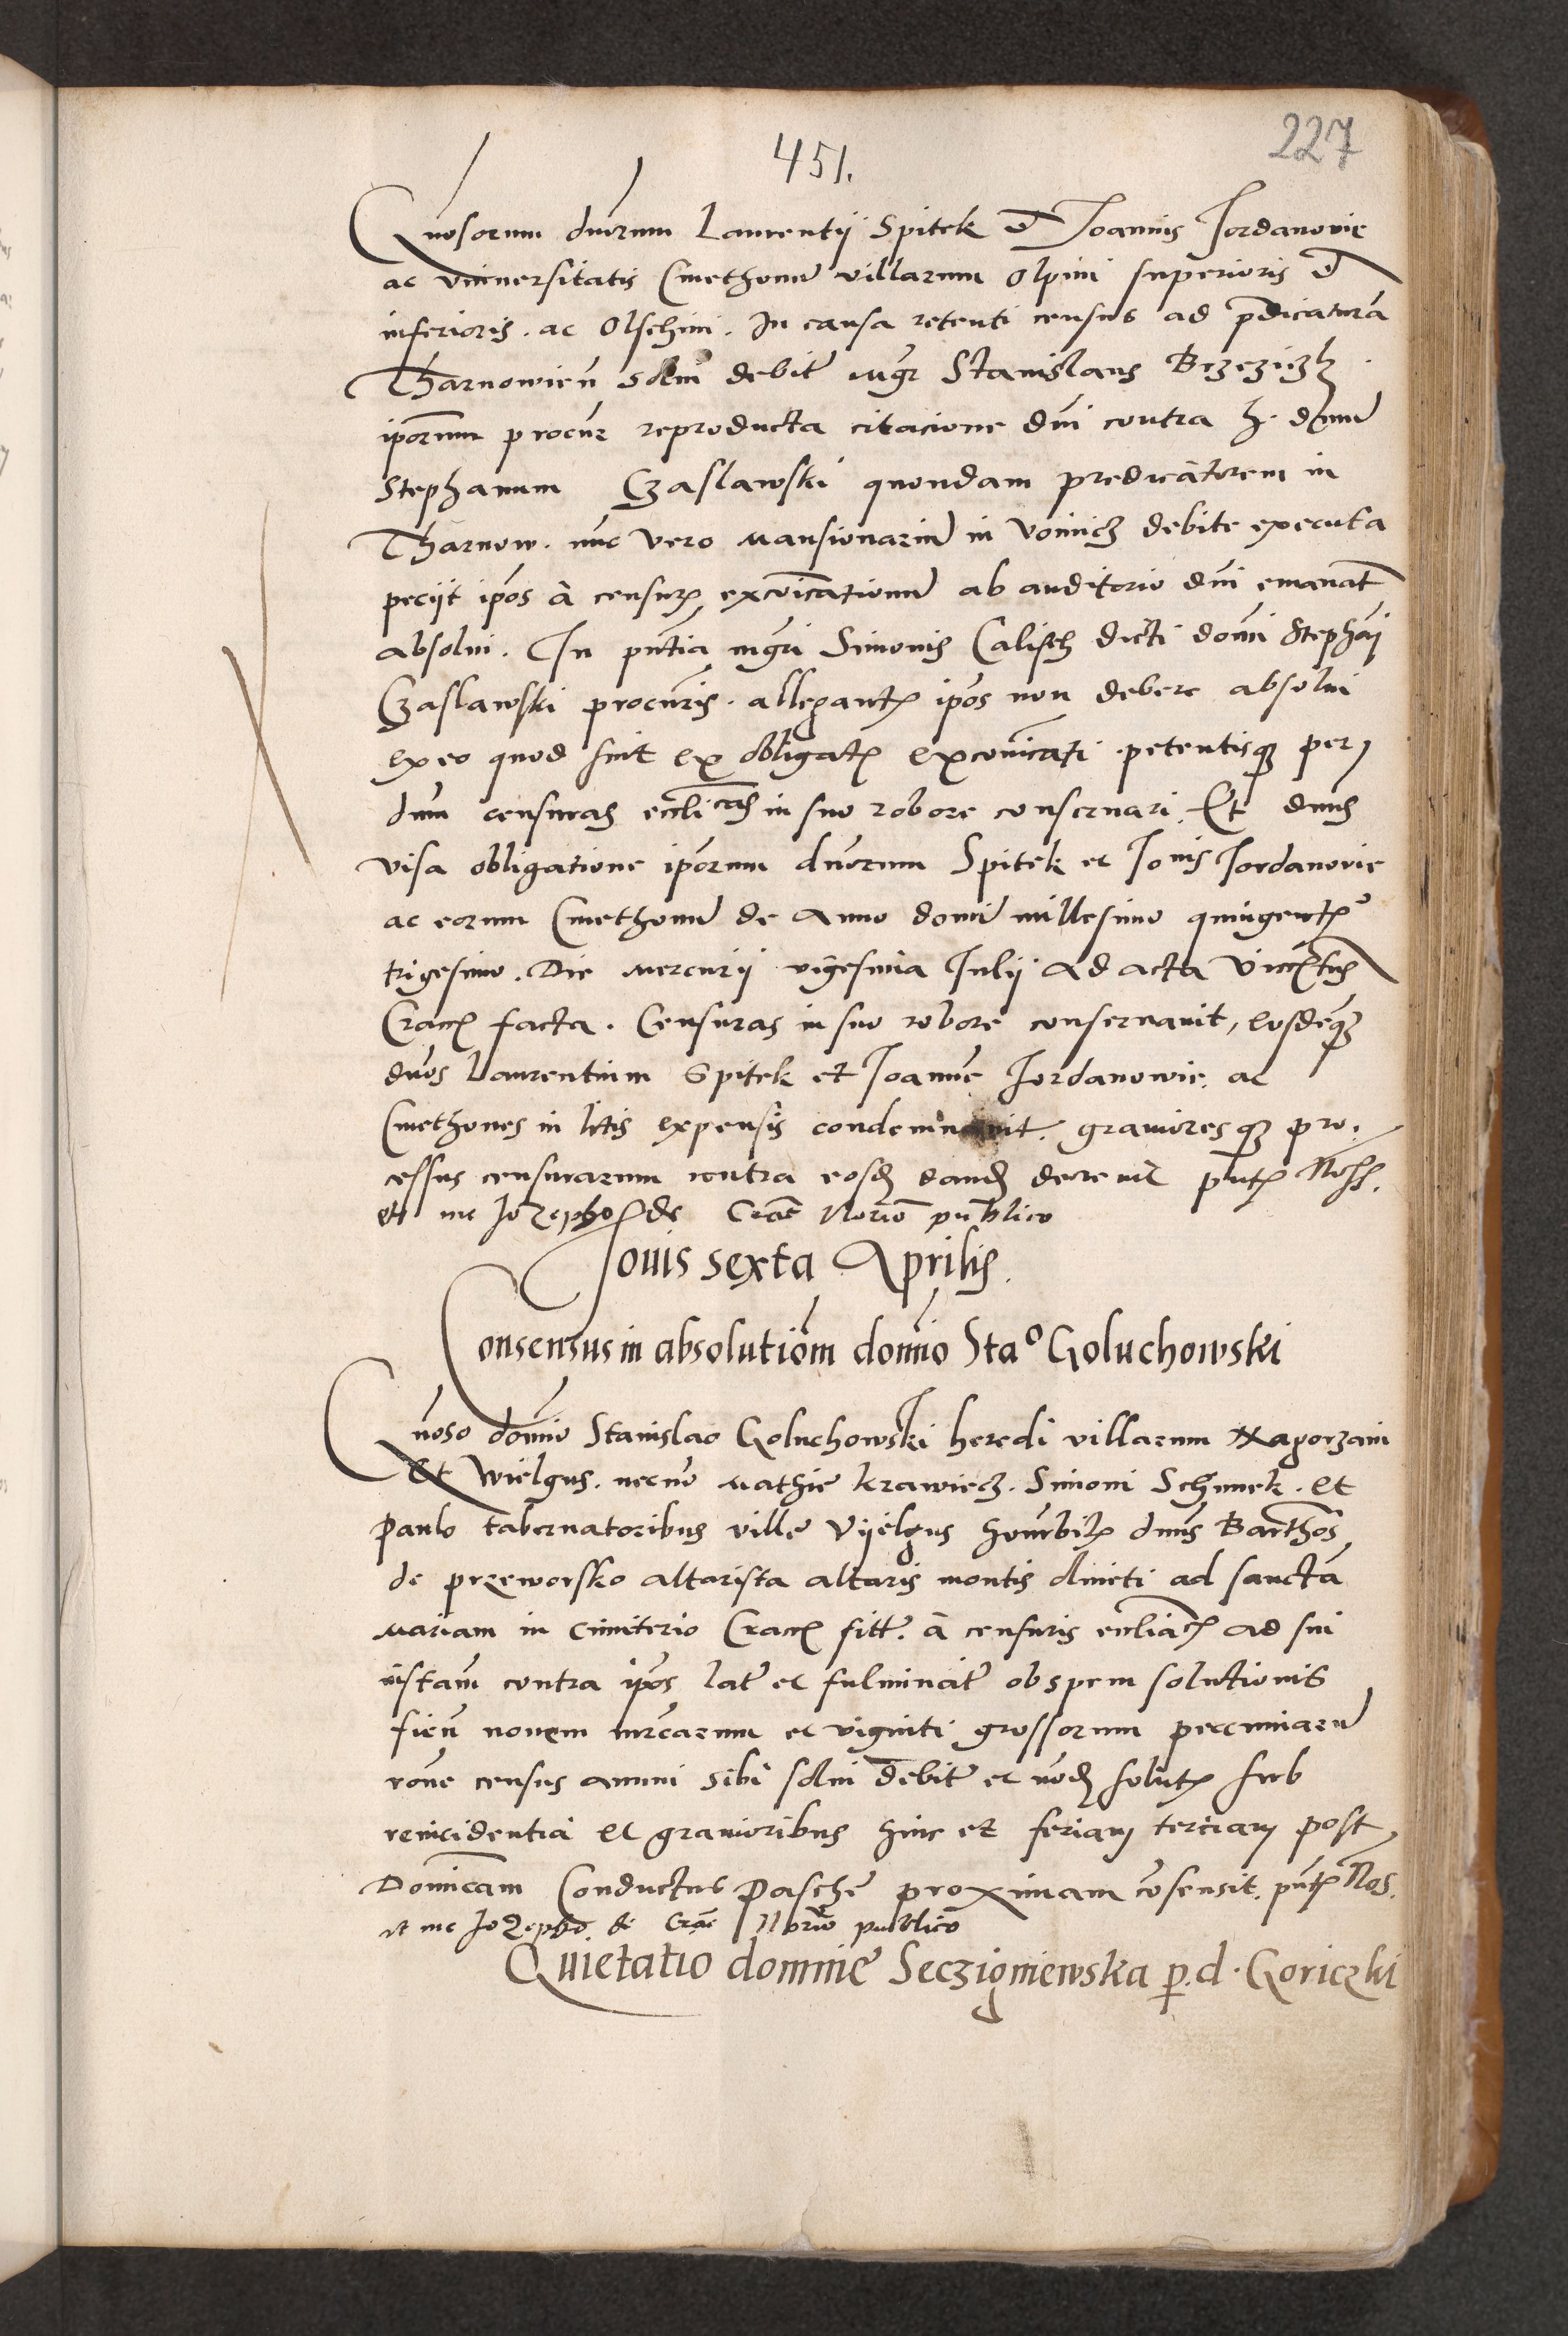 227
451.
Gnosorum dnorum Laurentij Spitek et Joannis Jordanovie
ac vniversitatis Cmethonum villarum Olpini superioris et
inferioris. ac Olschini. In causa retenti census ad pdicaturam
Tharnowien̄ solui debit̄ Mgr̄ Stanislaus Brzeziczki
ip̄orum procur̄ reproducta citacione dn̄i contra h. dn̄um
Stephanum Czaslawski quondam predicatorem in
Tharnow. nūc vero Mansionariū in Voinicz debite executa
peciit ip̄os à censur̄ exco͞icationum ab auditorio dn̄i emanat̄
absolui. In pn̄tia mgr̄i Simonis Calisch dicti domi Stephani
Czaslawski procur̄is. allegantis ip̄os non debere absolui
ex eo quod sint ex obligat̄ exco͞icati. petentisq3 per
dn̄um censuras eccl͞icas in suo robore conseruari. Et dn̄us
visa obligatione ip̄orum dn̄orum Spitek et Jo͞nis Jordanovie
ac eorum Cmethonum de Anno domini millesimo quingent̄
trigesimo. Die Mercurij vigesima Julij Ad acta Vic͞tus
Crac̄ facta. Censuras in suo robore conseruauit, eosdēq3
dn̄os Laurentium Spitek et Joannē Jordanowie. ac
Cmethones in litis expensis condemnauit. grauioresq3 pro.
cessus censurarum contra eosd̄ dand̄ decreuit pn̄t̄
et me Jozepho de Crac̄ Norīo publico
Jouis sexta Aprilis.
Consensus in absolutio͞m domīo Sta° Goluchowski
Gnoso domīo Stanislao Goluchowski heredi villarum Xagorzani
Et Wielgus. necnō Mathie krawiecz. Simoni Schimek. et
Paulo tabernatoribus ville Vyelgus honorbil̄ dn̄us Barthos̄
de przeworsko altarista altaris montis oliueti ad sanctā
Mariam in Cimiterio Crac̄ sitt̄. à censuris eccl͞iac̄ ad sui
instam̄ contra ip̄os lat̄ et fulminat̄ ob spem solutionis
fien̄ novem mrcarum et viginti grossorum pecuniarū
rōne census annui sibi solui debit̄ et nōd̄ solut̄ sub
reincidentia et grauioribus hinc et feriam terciam post
Dominicam Conductus Pasche proximam cōsensit. pn̄t̄
et me Jozepho de Crac̄ Norīo publico
Quietatio domine Seczigniewska p. d. Goriczki